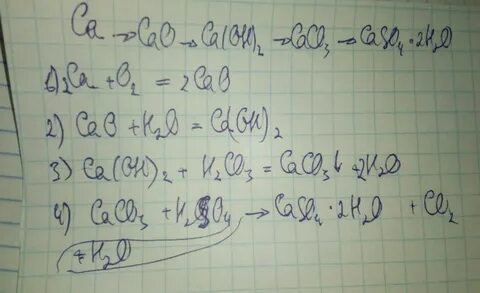 Ca → CaO → Ca(OH)₂ → CaCO₃ → CaSO₄·2H₂O
1) 2Ca + O₂ = 2CaO
2) CaO + H₂O = Ca(OH)₂
3) Ca(OH)₂ + H₂CO₃ = CaCO₃↓ + 2H₂O
4) CaCO₃ + H₂SO₄ → CaSO₄·2H₂O + CO₂
+ H₂O